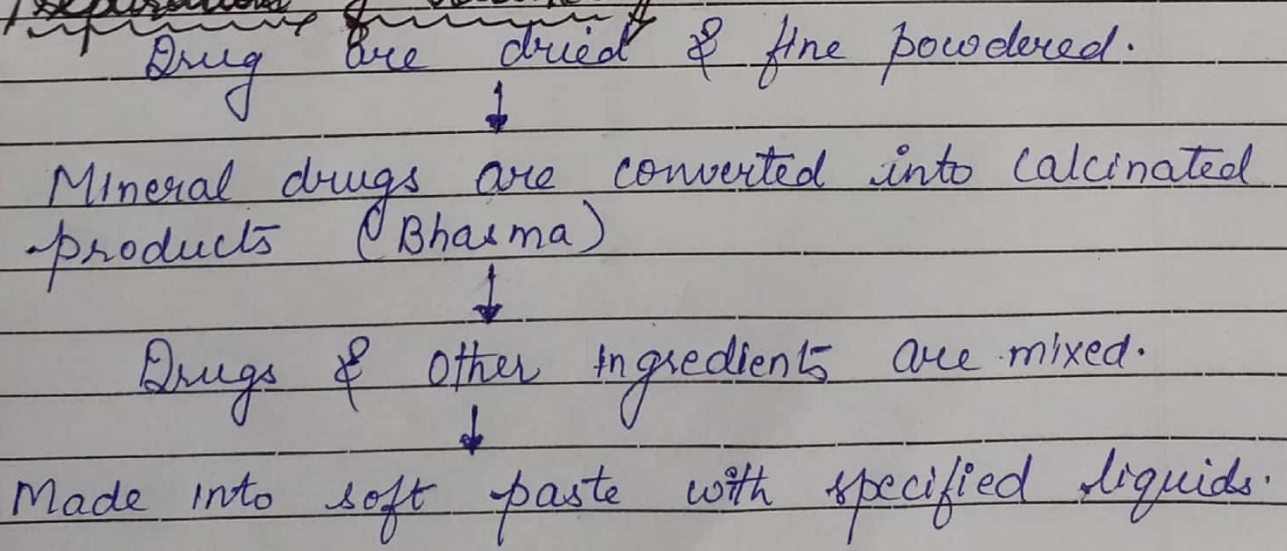 Drug are dried & fine powdered.
↓
Mineral drugs are converted into Calcinated
products (Bhasma)
↓
Drugs & other ingredients are mixed.
↓
Made into soft paste with specified liquids.